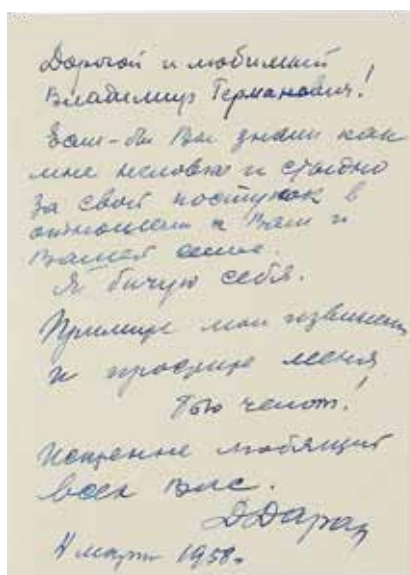 Дорогой и любимый
Владимир Германович!
Если-бы Вы знали как
мне неловко и стыдно
за свой поступок в
отношении к Вам и
Вашей семье.
Я бичую себя.
Примите мои извинения
и простите меня
Бью челом!
Искренне любящий
всех Вас.
4 марта 1958г